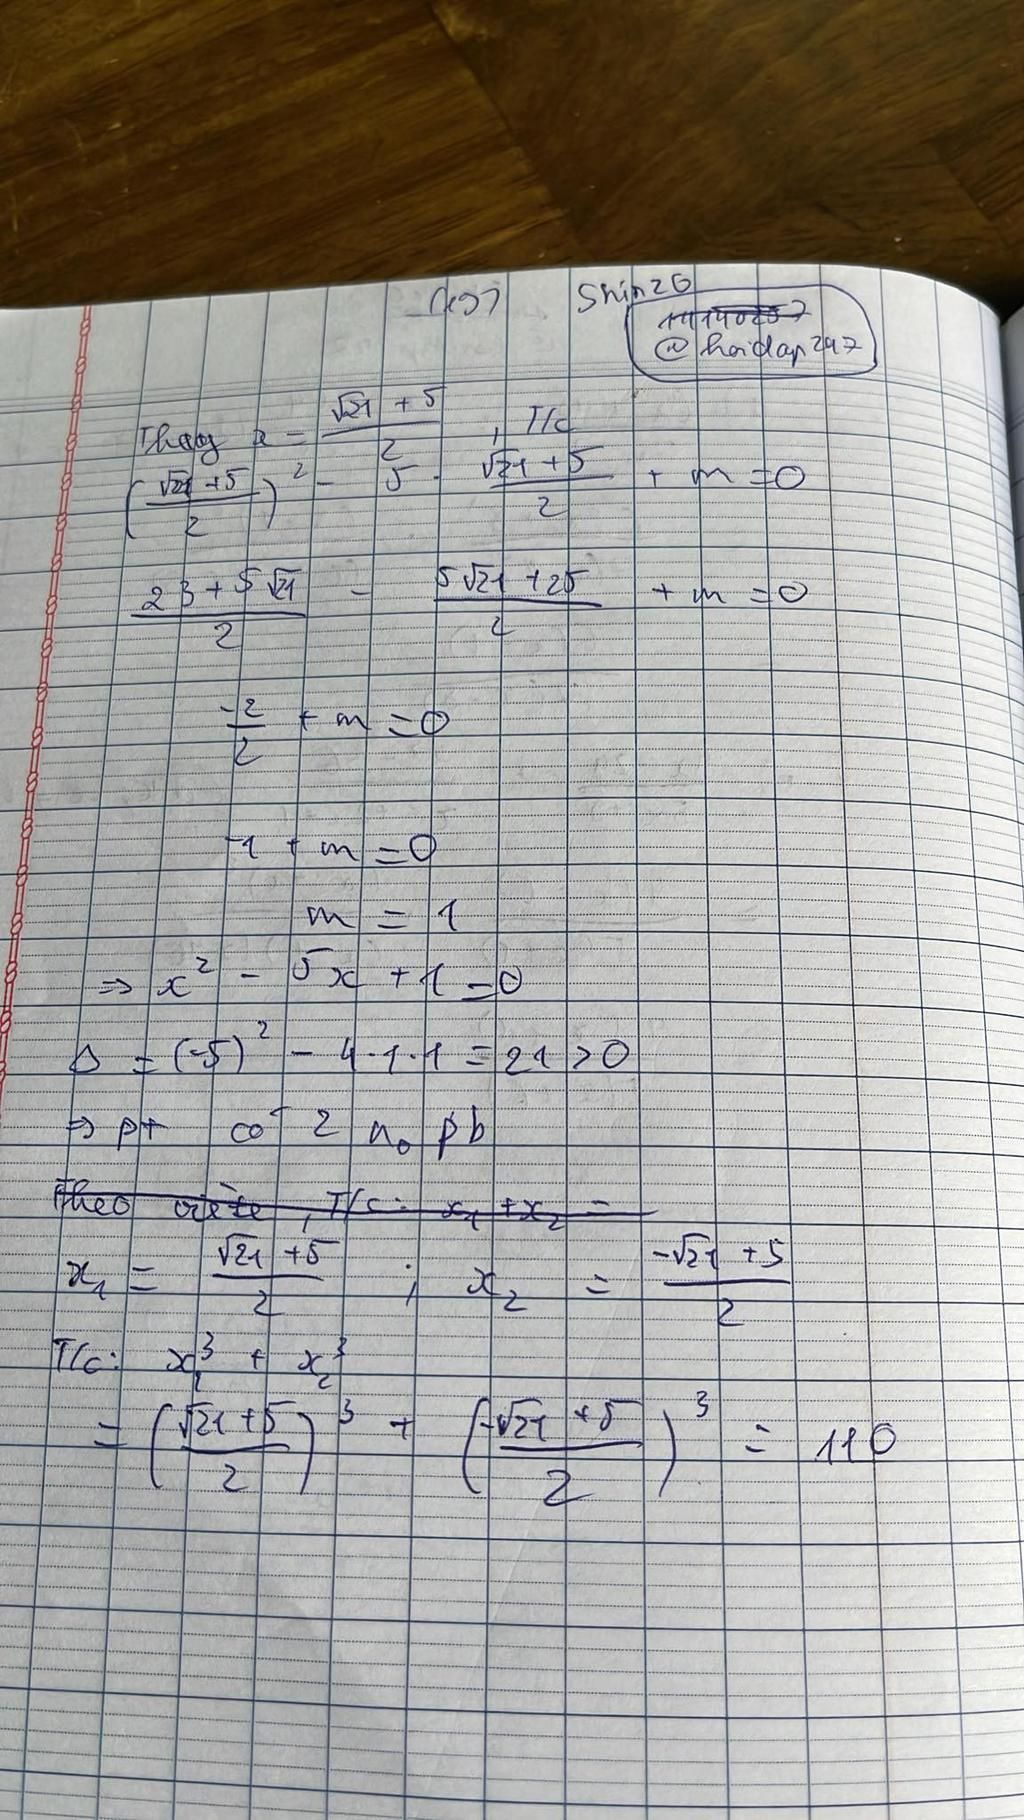 Shin26
@hoidap247
Thay x = (√21 + 5)/2, T/c
((√21 + 5)/2)² - 5 · (√21 + 5)/2 + m = 0
(23 + 5√21)/2 - (5√21 + 25)/2 + m = 0
-2/2 + m = 0
-1 + m = 0
m = 1
⇒ x² - 5x + 1 = 0
Δ = (-5)² - 4·1·1 = 21 > 0
⇒ pt có 2 no pb
Theo viète, T/c: x₁ + x₂ =
x₁ = (√21 + 5)/2 ; x₂ = (-√21 + 5)/2
T/c: x₁³ + x₂³
= ((√21 + 5)/2)³ + ((-√21 + 5)/2)³ = 110